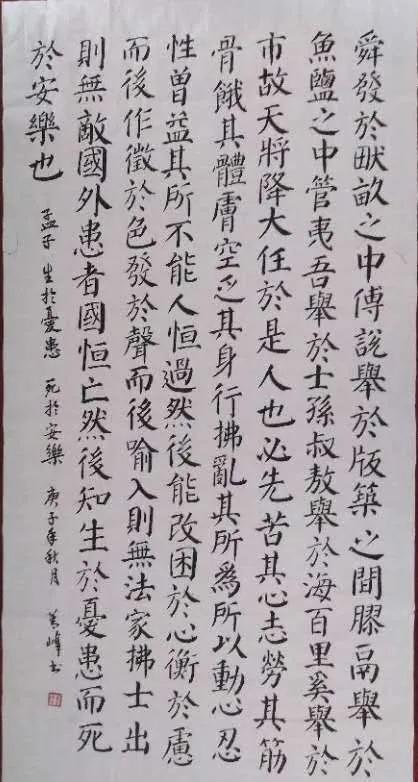 舜發於畎畝之中傅說舉於版築之間膠鬲舉於
魚鹽之中管夷吾舉於士孫叔敖舉於海百里奚舉於
市故天將降大任於是人也必先苦其心志勞其筋
骨餓其體膚空乏其身行拂亂其所爲所以動心忍
性曾益其所不能人恒過然後能改困於心衡於慮
而後作徵於色發於聲而後喻入則無法家拂士出
則無敵國外患者國恒亡然後知生於憂患而死
於安樂也
孟子 生於憂患 死於安樂 庚子年秋月 美峰书